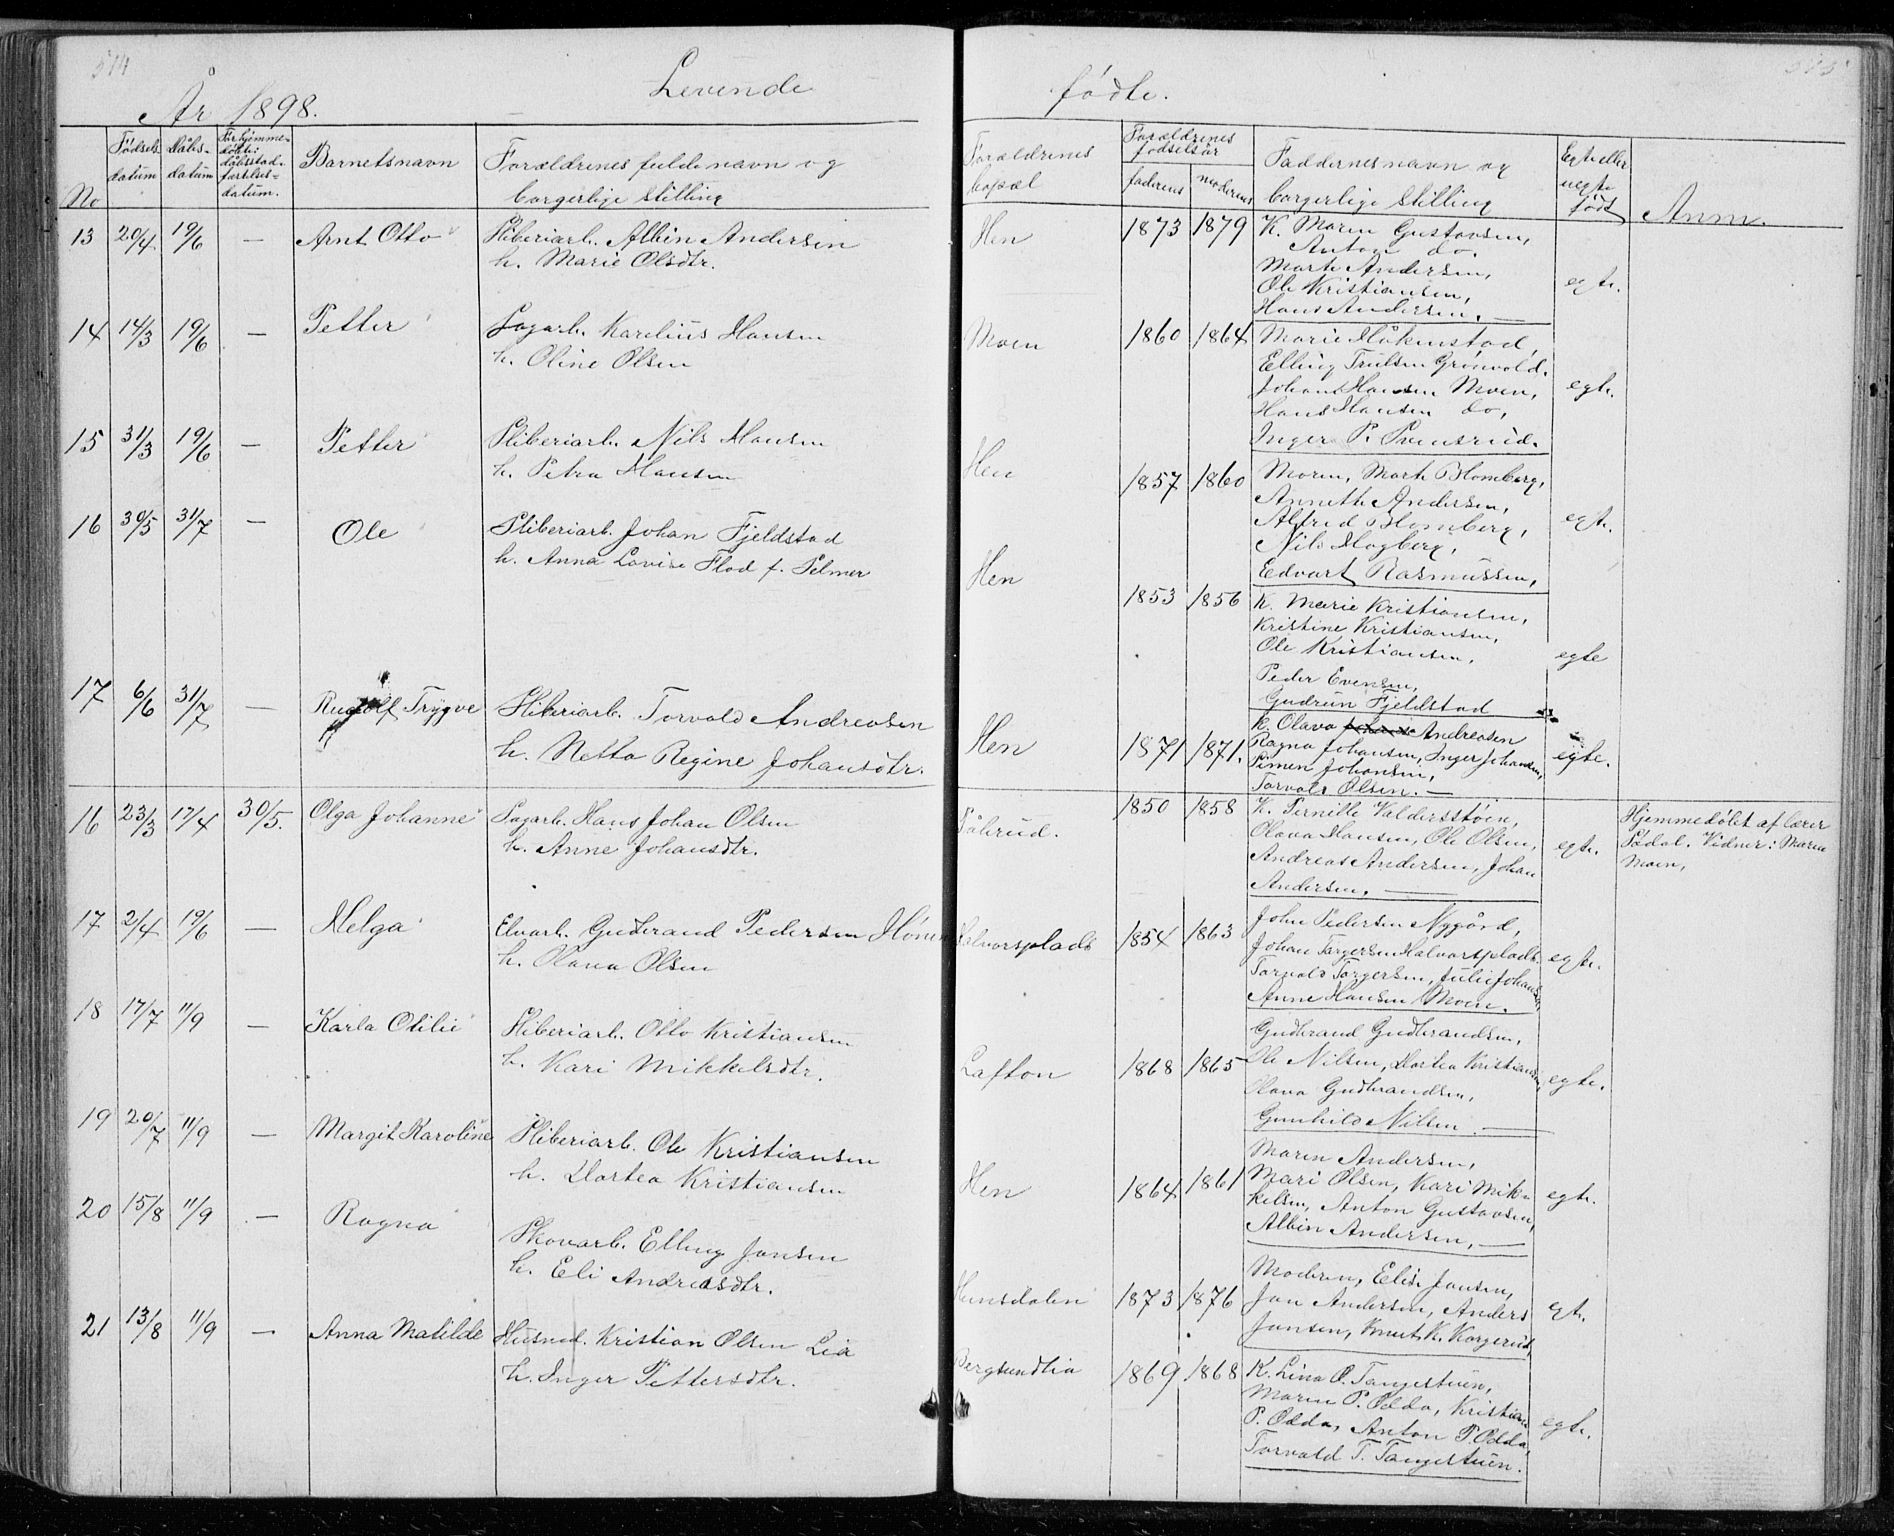 514
År 1898.
Levende
No
Fødsels datum
Dåbs- datum
For hjemme- døbte: dåbsstad- fæstelses- datum.
Barnets navn
Forældrenes fulde navn og borgerlige stilling
13 20/4 19/6 — Arnt Otto Sliberiarb. Albin Andersen
h. Marie Olsdtr.
14 14/3 19/6 — Petter Sagarb. Karelius Hansen
h. Oline Olsen
15 31/3 19/6 — Petter Sliberiarb. Nils Hansen
h. Petra Hansen
16 30/5 31/7 — Ole Sliberiarb. Johan Fjeldstad
h. Anna Lovise Flod f. Selmer
17 6/6 31/7 — Rudolf Trygve Sliberiarb. Torvald Andreasen
h. Netta Regine Johansdtr.
16 23/3 17/4 30/5. Olga Johanne Sagarb. Hans Johan Olsen
h. Anne Johansdtr.
17 2/4 19/6 — Helga Elvarb. Gudbrand Pedersen Hønen
h. Olava Olsen
18 17/7 11/9 — Karla Otilie Sliberiarb. Otto Kristiansen
h. Kari Mikkelsdtr.
19 20/7 11/9 — Margit Karoline Sliberiarb. Ole Kristiansen
h. Dortea Kristiansen
20 15/8 11/9 — Ragna Skovarb. Elling Jonsen
h. Eli Andreasdtr.
21 13/8 11/9 — Anna Matilde Husmd. Kristian Olsen Lia
h. Inger Pettersdtr.
515
fødte.
Forældrenes bopæl
Forældrenes fødselsår
faderens
moderens
Faddernes navn og borgerlige stilling
Egte eller uegte født
Anm.
Hen 1873 1879 K. Maren Gustavsen,
Anton do.
Marte Andersen,
Ole Kristiansen, egte.
Hans Andersen. —
Moen 1860 1864 Marie Håkenstad,
Elling Trulsen Grønvold.
Johan Hansen Moen, egte.
Hans Hansen do,
Inger P. Svensrud.
Hen 1857 1860 Moren, Marte Blomberg,
Annethe Andersen,
Alfred Blomberg, egte.
Nils Hagberg,
Edvart Rasmussen,
Hen 1853 1856 K. Marie Kristiansen,
Kristine Kristiansen,
Ole Kristiansen, egte
Peder Evensen,
Gudrun Fjeldstad
Hen 1871 1871. K. Olava Andreasen
Ragna Johansen, Inger Johansen, egte.
Simen Johansen,
Torvald Olsen. —
Påbrud. 1850 1858 K. Pernille Valdersstøen, Hjemmedøbt af lærer
Olava Hansen, Ole Olsen, egte. Sødal. Vidner: Maren
Andreas Andersen, Johan Moen,
Andersen. —
Halvorsplads 1854 1863 John Pedersen Nygård,
Johan Torgersen Halvorsplads egte.
Torvald Torgersen, Julie Johansen,
Anne Hansen Moen.
Lafton 1868 1865 Gudbrand Gudbrandsen,
Ole Nilsen, Dortea Kristiansen, egte.
Olava Gudbrandsen,
Gunhild Nilsen. —
Hen 1864 1861 Maren Andersen,
Mari Olsen, Kari Mik- egte.
kelsen, Anton Gustavsen,
Albin Andersen, —
Hensdalen 1873 1876 Moderen, Elise Jonsen,
Jon Andersen, Anders egt.
Jonsen, Knut K. Korgerud,
Bergsundlia 1869 1868 K. Lina O. Tangestuen,
Maren P. Odda, Kristian
P. Odda, Anton P. Odda, egte.
Torvald T. Tangestuen.